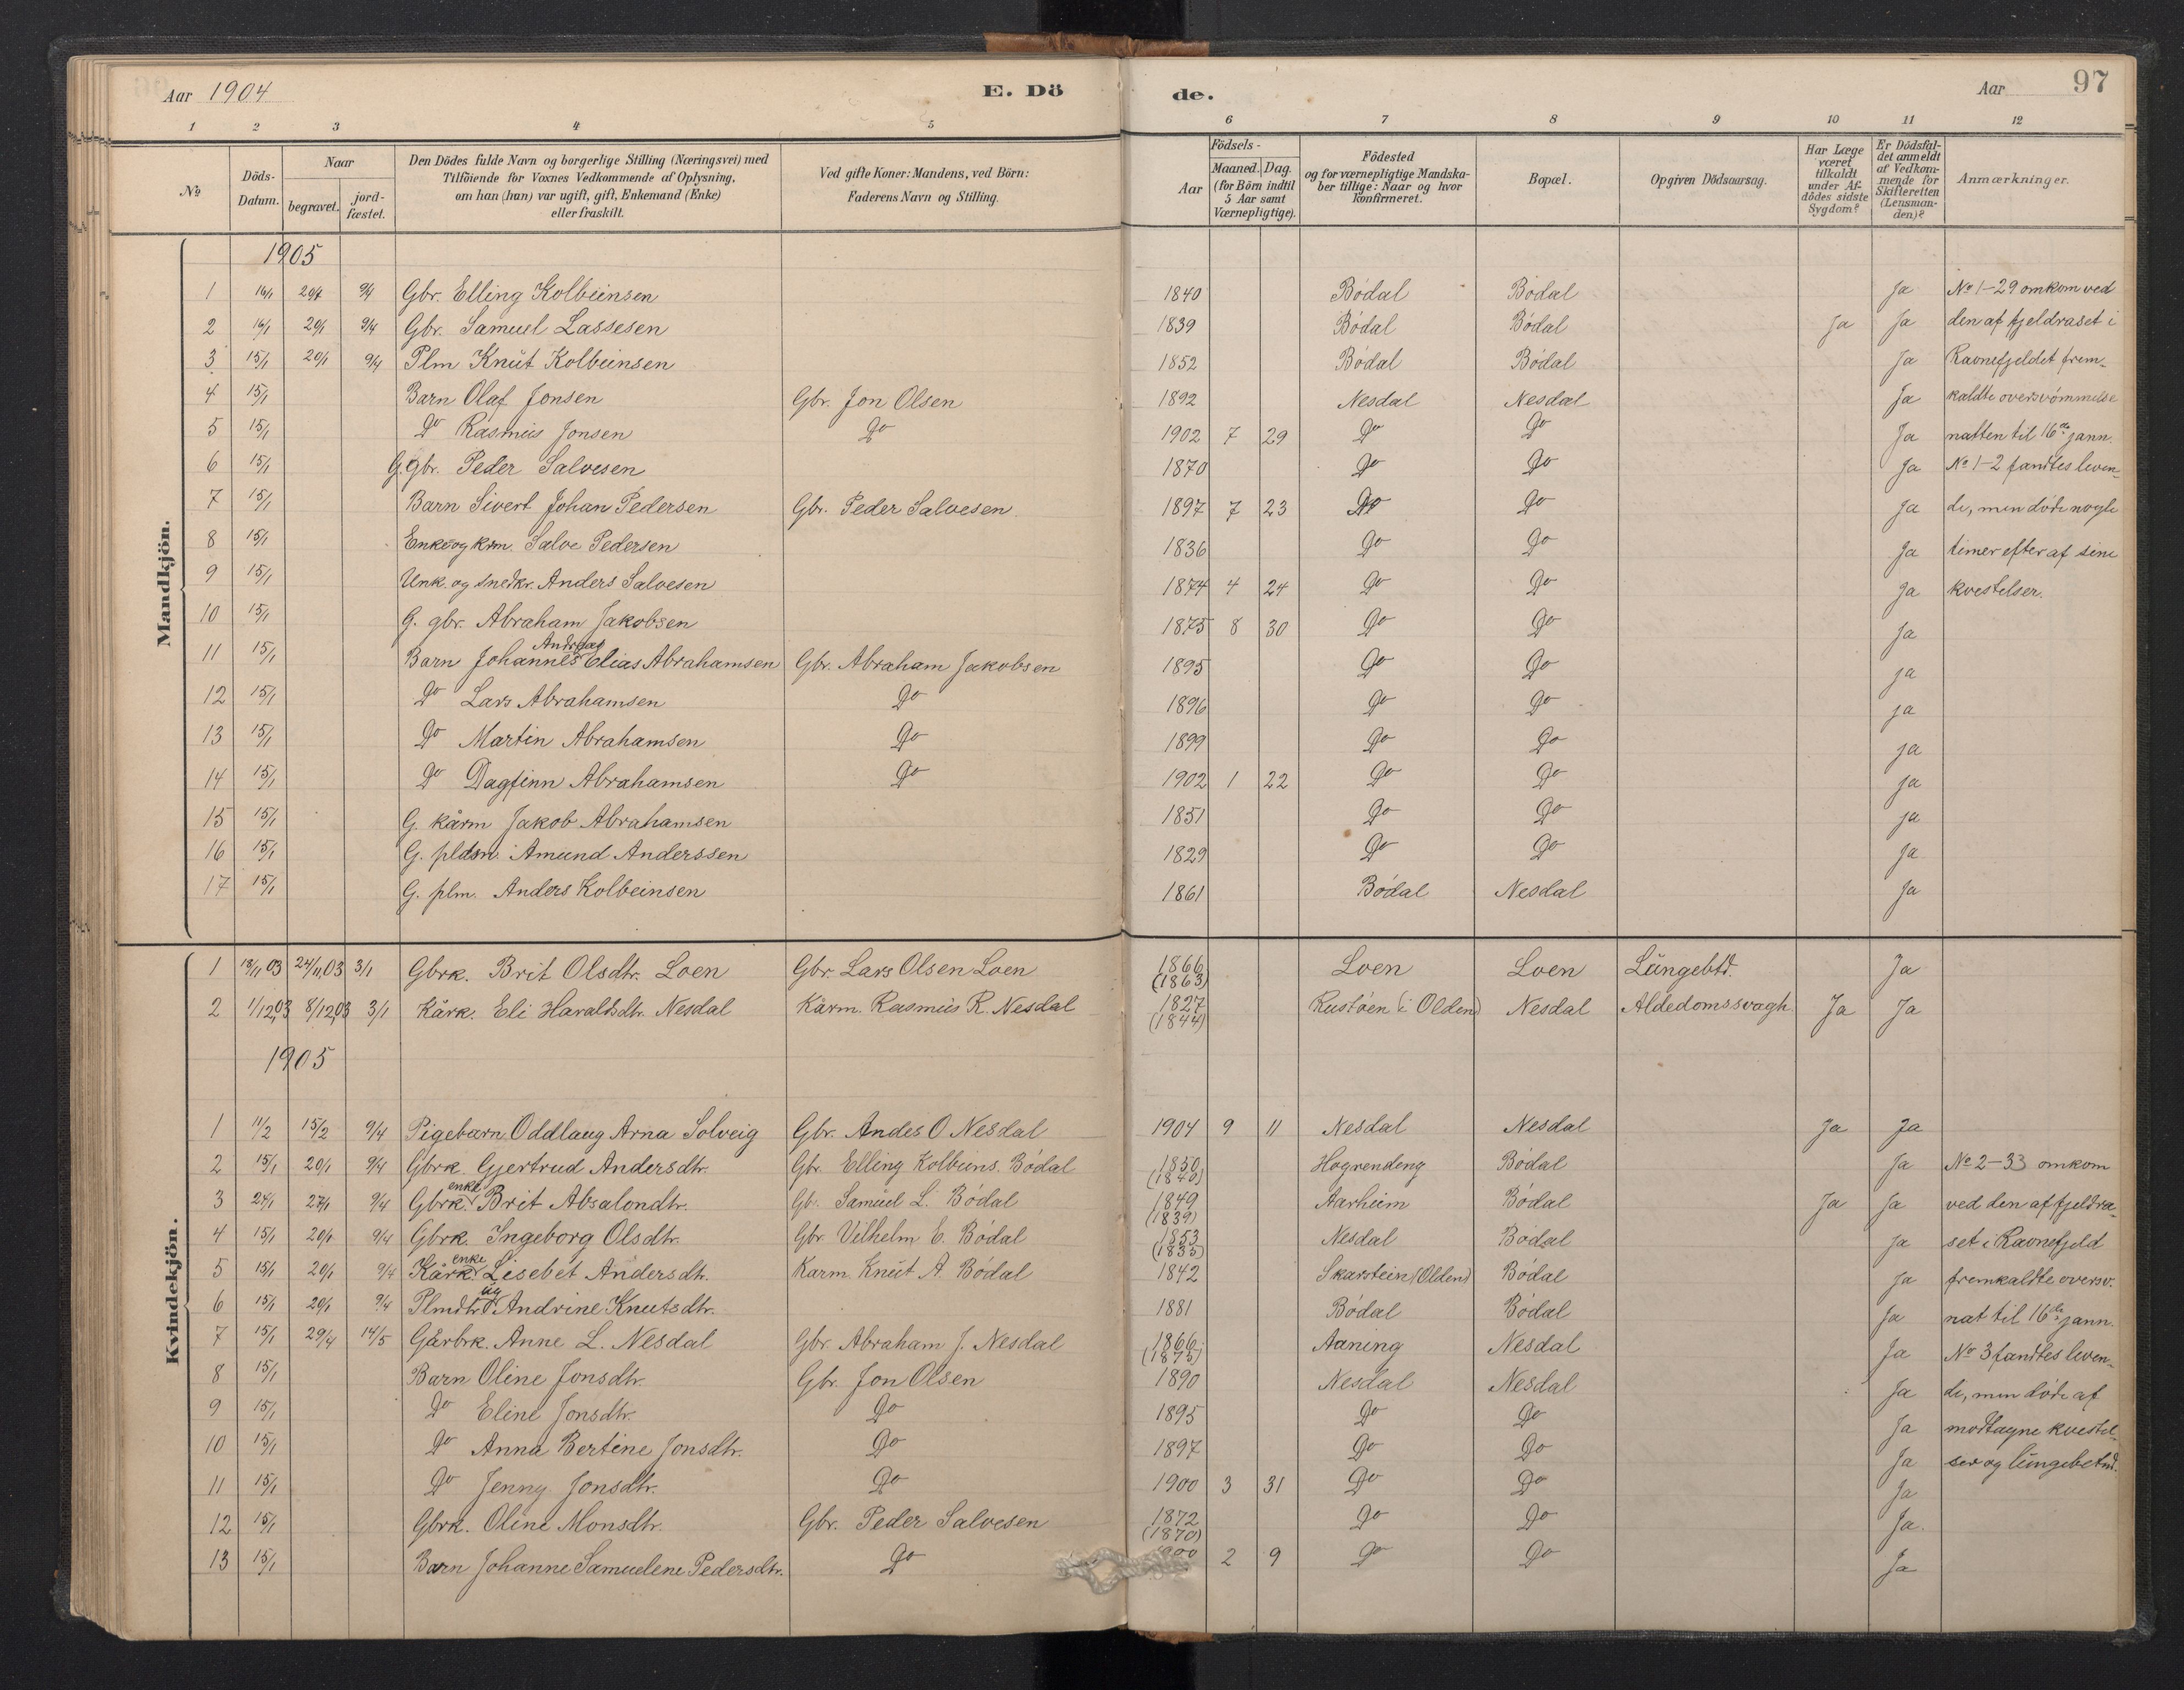 Aar 1904 E. Dö de. Aar 97
1 2 3 4 5 6 7 8 9 10 11 12
No
Döds-Datum.
Naar
begravet.
jord-fæstet.
Den Dödes fulde Navn og borgerlige Stilling (Næringsvei) med
Tilföiende for Voxnes Vedkommende af Oplysning,
om han (hun) var ugift, gift, Enkemand (Enke)
eller fraskilt.
Ved gifte Koner: Mandens, ved Börn:
Faderens Navn og Stilling.
Födsels-
Aar
Maaned. Dag.
(for Börn indtil
5 Aar samt
Værnepligtige).
Födested
og for værnepligtige Mandska-
ber tillige: Naar og hvor
konfirmeret.
Bopæl.
Opgiven Dödsaarsag.
Har Læge
været
tilkaldt
under Af-
dödes sidste
Sygdom?
Er Dödsfal-
det anmeldt
af Vedkom-
mende for
Skifteretten
(Lensman-
den)?
Anmærkninger.
Mandkjön.
1905
1 16/1 20/1 9/4 Gbr. Elling Kolbeinsen 1840 Bödal Bödal Ja No 1-29 omkom ved
2 16/1 20/1 9/4 Gbr. Samuel Lassesen 1839 Bödal Bödal Ja Ja den af fjeldraset i
3 15/1 20/1 9/4 Plm Knut Kolbeinsen 1852 Bödal Bödal Ja Ravnefjeldet frem-
4 15/1 Barn Olaf Jonsen Gbr. Jon Olsen 1892 Nesdal Nesdal Ja kaldte oversvömmelse
5 15/1 Do Rasmus Jonsen Do 1902 7 29 Do Do Ja natten til 16de jann.
6 15/1 G.gbr. Peder Salvesen 1870 Do Do Ja No 1-2 fandtes leven-
7 15/1 Barn Sivert Johan Pedersen Gbr. Peder Salvesen 1897 7 23 Do Do Ja de, men döde nogle
8 15/1 Enke og krm. Salve Pedersen 1836 Do Do Ja timer efter af sine
9 15/1 Unk. og snedkr. Anders Salvesen 1874 4 24 Do Do Ja kvestelser.
10 15/1 G. gbr. Abraham Jakobsen 1875 8 30 Do Do Ja
11 15/1 Barn Johannes Andreas Elias Abrahamsen Gbr. Abraham Jakobsen 1895 Do Do Ja
12 15/1 Do Lars Abrahamsen Do 1896 Do Do Ja
13 15/1 Do Martin Abrahamsen Do 1899 Do Do Ja
14 15/1 Do Dagfinn Abrahamsen Do 1902 1 22 Do Do Ja
15 15/1 G. kårm Jakob Abrahamsen 1851 Do Do Ja
16 15/1 G. pldsm. Amund Anderssen 1829 Do Do Ja
17 15/1 G. plm. Anders Kolbeinsen 1861 Bödal Nesdal Ja
Kvindekjön.
1 18/11 03 24/11 03 3/1 Gbrk. Brit Olsdtr. Loen Gbr. Lars Olsen Loen 1866 (1863) Loen Loen Lungebtd. Ja
2 1/12 03 8/12 03 3/1 Kårk. Eli Haraldsdtr. Nesdal Kårm. Rasmus R. Nesdal 1827 (1844) Rustöen (i Olden) Nesdal Aldedomssvagh. Ja Ja
1905
1 11/2 15/2 9/4 Pigebarn Oddlaug Arna Solveig Gbr. Andes O Nesdal 1904 9 11 Nesdal Nesdal Ja Ja
2 15/1 20/1 9/4 Gbrk. Gjertrud Andersdtr. Gbr. Elling Kolbeins. Bödal 1850 (1840) Hogrendeng Bödal Ja No 2-33 omkom
3 24/1 27/1 9/4 Gbrk. enke Brit Absalondtr. Gbr. Samuel L. Bödal 1849 (1839) Aarheim Bödal Ja Ja ved den af fjeldra-
4 15/1 20/1 9/4 Gbrk. Ingeborg Olsdtr. Gbr. Vilhelm E. Bödal 1853 (1835) Nesdal Bödal Ja set i Ravnefjeld
5 15/1 20/1 9/4 Kårk. enke Lisebet Andersdtr. Karm. Knut A. Bödal 1842 Skarstein (Olden) Bödal Ja fremkaldte oversv.
6 15/1 20/1 9/4 Plmdtr ug Andrine Knutsdtr. 1881 Bödal Bödal Ja nat til 16de jann.
7 15/1 29/4 14/5 Gårbrk. Anne L. Nesdal Gbr. Abraham J. Nesdal 1866 (1875) Aaning Nesdal Ja No 3 fandtes leven-
8 15/1 Barn Oline Jonsdtr. Gbr. Jon Olsen 1890 Nesdal Nesdal Ja de, men döde af
9 15/1 Do Eline Jonsdtr. Do 1895 Do Do Ja modtagne kvestel-
10 15/1 Do Anna Bertine Jonsdtr. Do 1897 Do Do Ja ser og lungebetnd.
11 15/1 Do Jenny Jonsdtr. Do 1900 3 31 Do Do Ja
12 15/1 Gbrk. Oline Monsdtr. Gbr. Peder Salvesen 1872 (1870) Do Do Ja.
13 15/1 Barn Johanne Samuelene Pedersdtr. Do 1900 2 9 Do Do Ja